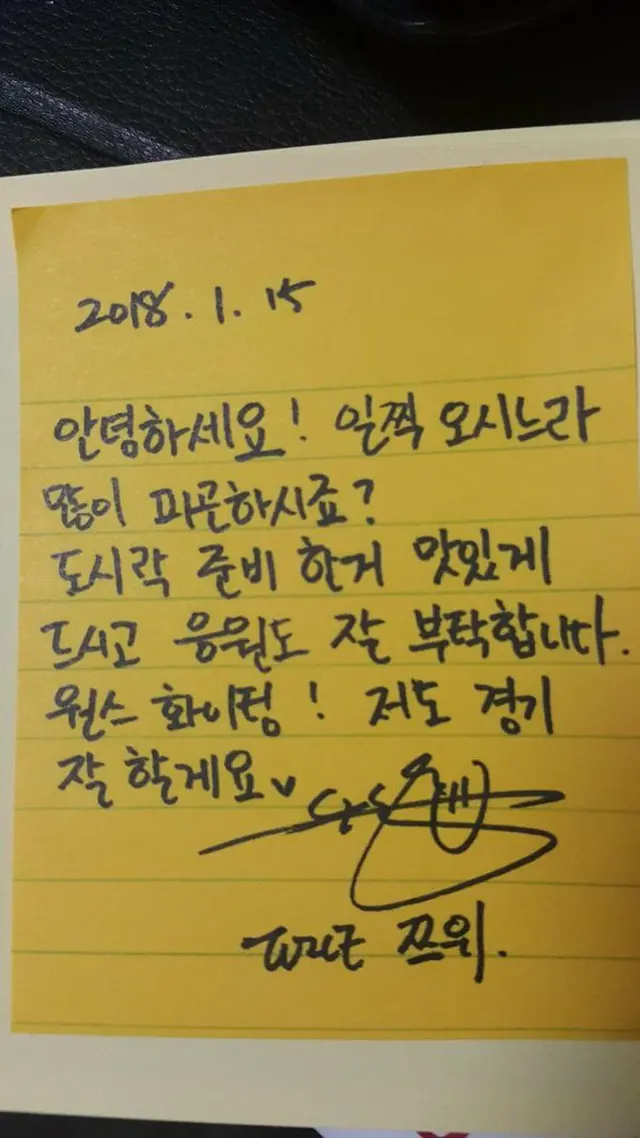 2018.1.15
안녕하세요! 일찍 오시느라
많이 피곤하시죠?
도시락 준비 한거 맛있게
드시고 응원도 잘 부탁합니다.
원스 화이팅! 저도 경기
잘 할게요
TWICE 쯔위.